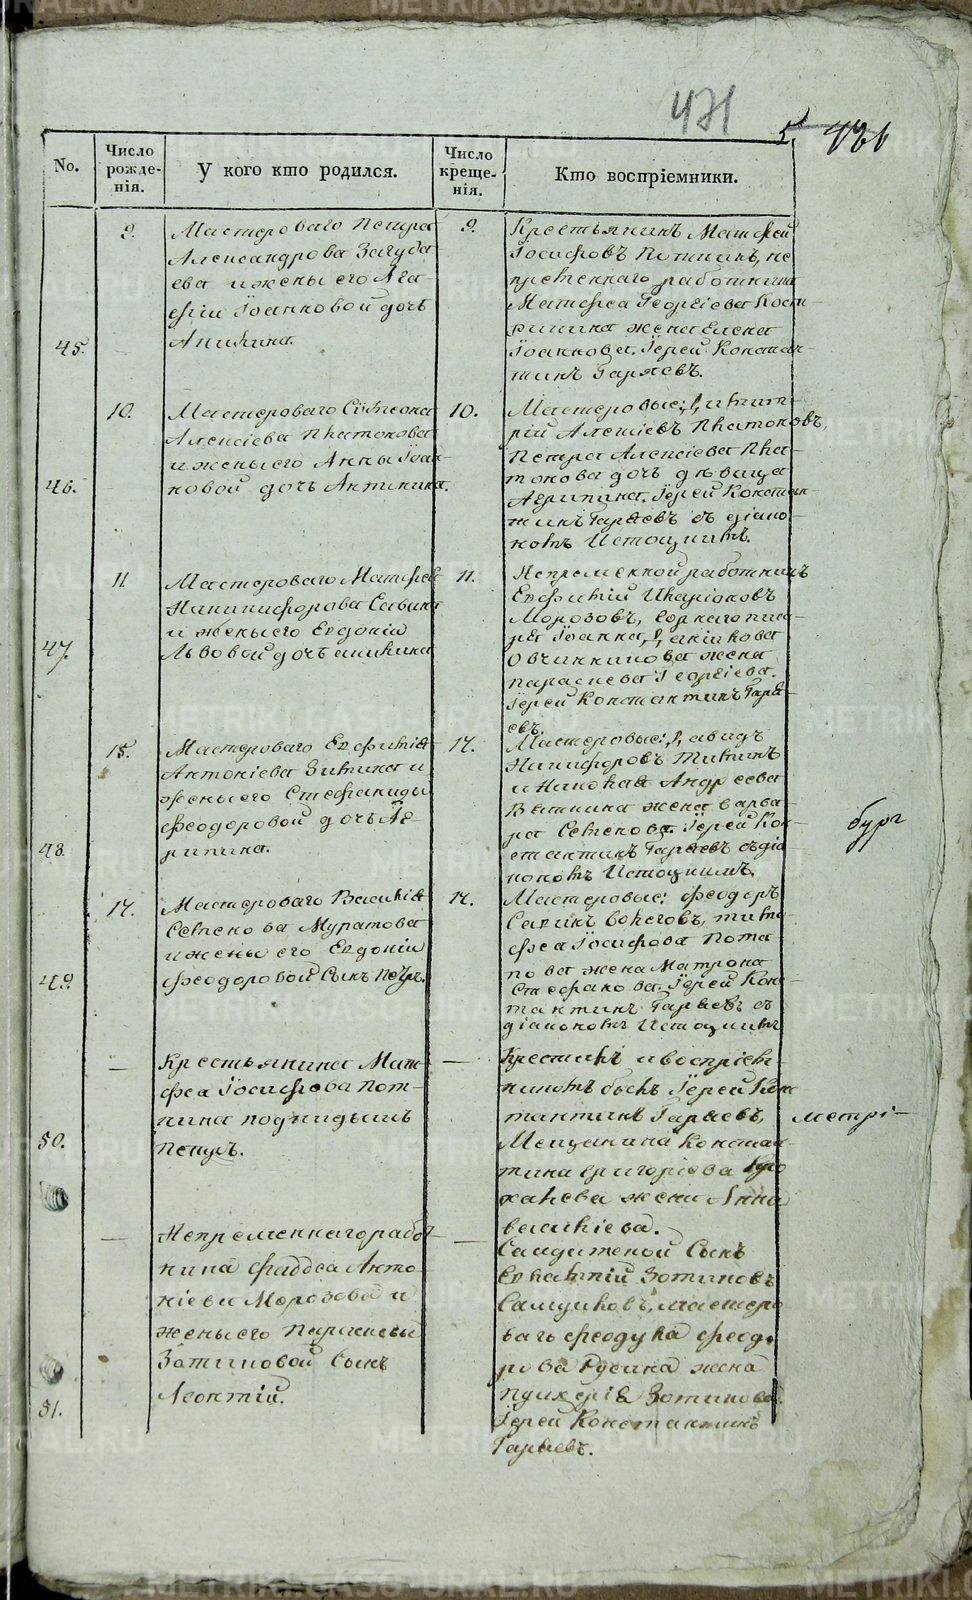 431
5
431
No.
Число рожде-нія.
У кого кто родился.
Число креще-нія.
Кто воспріемники.
45.
9.
Мастероваго Петра
Александрова Загуда
ева и жены его Ага
фіи Іоанновой дочь
Акилина.
9.
Крестьянинъ Матфей
Іосифовъ Потнинъ, не
премѣннаго работника
Матфеа Георгіева
жена Елена
Іоаннова. Іерей Констан-
тинъ Гаряевъ.
46.
10.
Мастероваго Сѵмеона
Алексіева Платонова
и жены его Анны Іоан-
новой дочь Антонина.
10.
Мастеровые: Димит-
рій Алексіевъ Платоновъ,
Петра Алексіева Пла-
тонова дочь дѣвица
Агрипина. Іерей Констан-
тинъ Гаряевъ съ діако-
номъ Истоминымъ.
47.
11
Мастероваго Матфеа
Никифорова Савина
и жены его Евдокіи
Львовой дочь Акилина
11.
Непремѣнной работникъ
Евфимій Иларіоновъ
Морозовъ,
Іоанна
Овчинникова жена
Параскева Георгіева.
Іерей Константинъ Гаря-
евъ.
48.
15.
Мастероваго Евфиміа
Антоніева Зимина и
жены его Стефаниды
Феодоровой дочь Аг-
рипина.
17.
Мастеровые: Давидъ
Никифоровъ
и Николаа Андреева
Вяткина жена Варва-
ра Семенова. Іерей Кон-
стантинъ Гаряевъ съ діа
кономъ Истоминымъ.
бург
49.
17.
Мастероваго Василіа
Семенова Муратова
и жены его Евдокіи
Феодоровой сынъ Петръ.
17.
Мастеровые: Феодоръ
Савинъ
Іосифова Пота
пова жена Матрона
Стефанова. Іерей Кон-
тантинъ Гаряевъ съ
діакономъ Истоминымъ
50.
—
Крестьянина Мат-
феа Іосифова Пот-
нина подкидышъ
Петръ.
—
Крестилъ и воспріем-
никомъ былъ Іерей Конс
тантинъ Гаряевъ,
Мещанина Констан
тина Григоріева
жена Анна
Василіева.
метрі-
51.
—
Непремѣннаго работ-
ника Фаддеа Анто
ніева Морозова и
жены его Параскевы
Зотиковой сынъ
Леонтій.
—
Солдатской сынъ
Евлампій Зотиковъ
Санниковъ, мастеро
ваго Феодула Феодо
рова Русина жена
Пулхеріа Зотикова.
Іерей Константинъ
Гаряевъ.